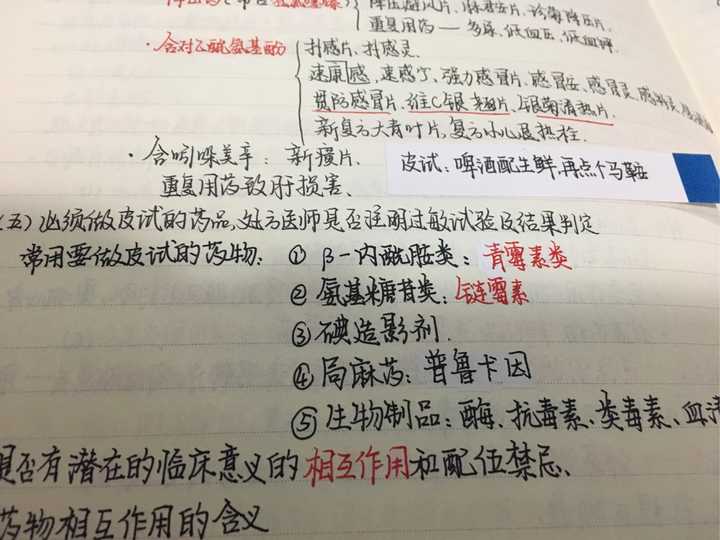 降压避风片、珍菊降压片.
重复用药——多尿、低血压、低血钾.
·含对乙酰氨基酚
抖感片、抖感灵.
速感宁、强力感冒片、感冒安、感冒灵、
贯防感冒片、维C银翘片、银菊清热片.
新复方大青叶片、复方小儿退热栓.
·含吲哚美辛:新癀片.
重复用药致肝损害.
皮试:啤酒配生鲜,再点个马鞍
(五)必须做皮试的药品,处方医师是否注明过敏试验及结果判定
常用要做皮试的药物:①β-内酰胺类:青霉素类
②氨基糖苷类:链霉素
③碘造影剂.
④局麻药:普鲁卡因
⑤生物制品:酶、抗毒素、类毒素、血清
是否有潜在的临床意义的相互作用和配伍禁忌、
药物相互作用的含义